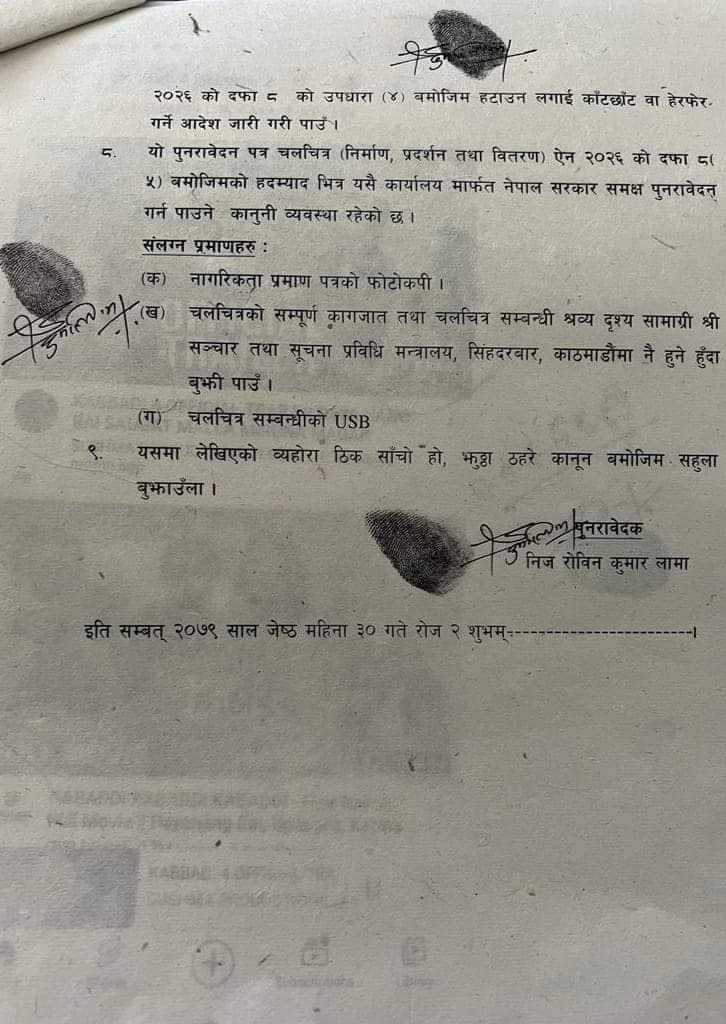 २०२६ को दफा ८ को उपधारा (४) बमोजिम हटाउन लगाई काँटछाँट वा हेरफेर
गर्ने आदेश जारी गरी पाउँ ।
८. यो पुनरावेदन पत्र चलचित्र (निर्माण, प्रदर्शन तथा वितरण) ऐन २०२६ को दफा ८(
५) बमोजिमको हदम्याद भित्र यसै कार्यालय मार्फत नेपाल सरकार समक्ष पुनरावेदन्
गर्न पाउने कानुनी व्यवस्था रहेको छ ।
संलग्न प्रमाणहरु :
(क) नागरिकता प्रमाण पत्रको फोटोकपी ।
(ख) चलचित्रको सम्पूर्ण कागजात तथा चलचित्र सम्बन्धी श्रव्य दृश्य सामाग्री श्री
सञ्चार तथा सूचना प्रविधि मन्त्रालय, सिंहदरबार, काठमाडौंमा नै हुने हुँदा
बुझी पाउँ ।
(ग) चलचित्र सम्बन्धीको USB
९. यसमा लेखिएको व्यहोरा ठिक साँचो हो, झुठ्ठा ठहरे कानून बमोजिम सहुला
बुझाउँला ।
पुनरावेदक
निज रोविन कुमार लामा
इति सम्बत् २०७९ साल जेष्ठ महिना ३० गते रोज २ शुभम्-------------------------।